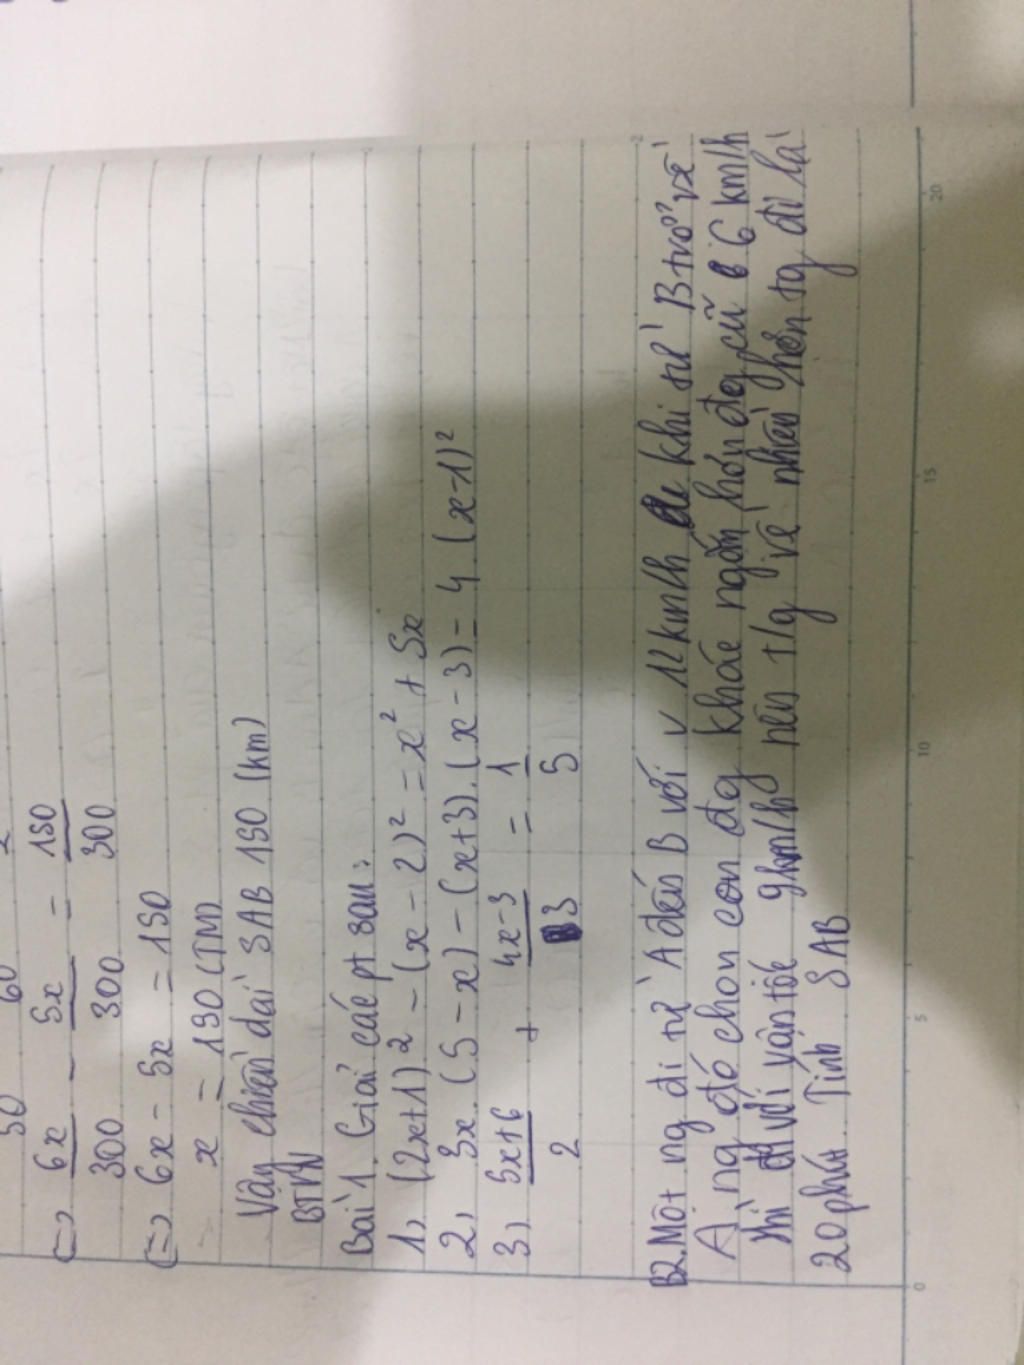 50 60 2
(=) 6x/300 - 5x/300 = 150/300
(=) 6x - 5x = 150
x = 150 (TM)
Vậy chiều dài SAB 150 (km)
BTVN
Bài 1. Giải các pt sau:
1, (2x+1)² - (x-2)² = x² + 5x
2, 3x.(5-x) - (x+3).(x-3) = 4.(x-1)²
3, 5x+6/2 + 4x-3/3 = 1/5
B2. Một ng đi từ A đến B với v 12km/h khi từ B trở về
A ng đó chọn con đg khác ngắn hơn đg cũ 6 km/h
đi với vận tốc 9km/h nên t/g về nhiều hơn tg đi là
20 phút. Tính SAB
0 5 10 15 20